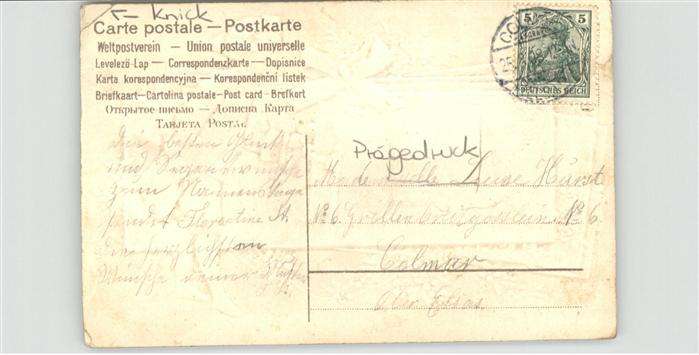 F- Knick
Carte postale — Postkarte
Weltpostverein — Union postale universelle
Levelező-Lap — Correspondenzkarte — Dopisnice
Karta korespondencyjna — Korespondenční lístek
Briefkaart — Cartolina postale — Post card — Brefkort
Открытое письмо — Дописна Карта
Tarjeta Postal
5 5
DEUTSCHES REICH
Prägedruck
Die besten Glück
und Segenswünsche
zum Namenstage
sendet Florentine St.
Die herzlichsten
Wünsche deine
Mademoiselle
No 6. No 6
Colmar
Ober Elsas